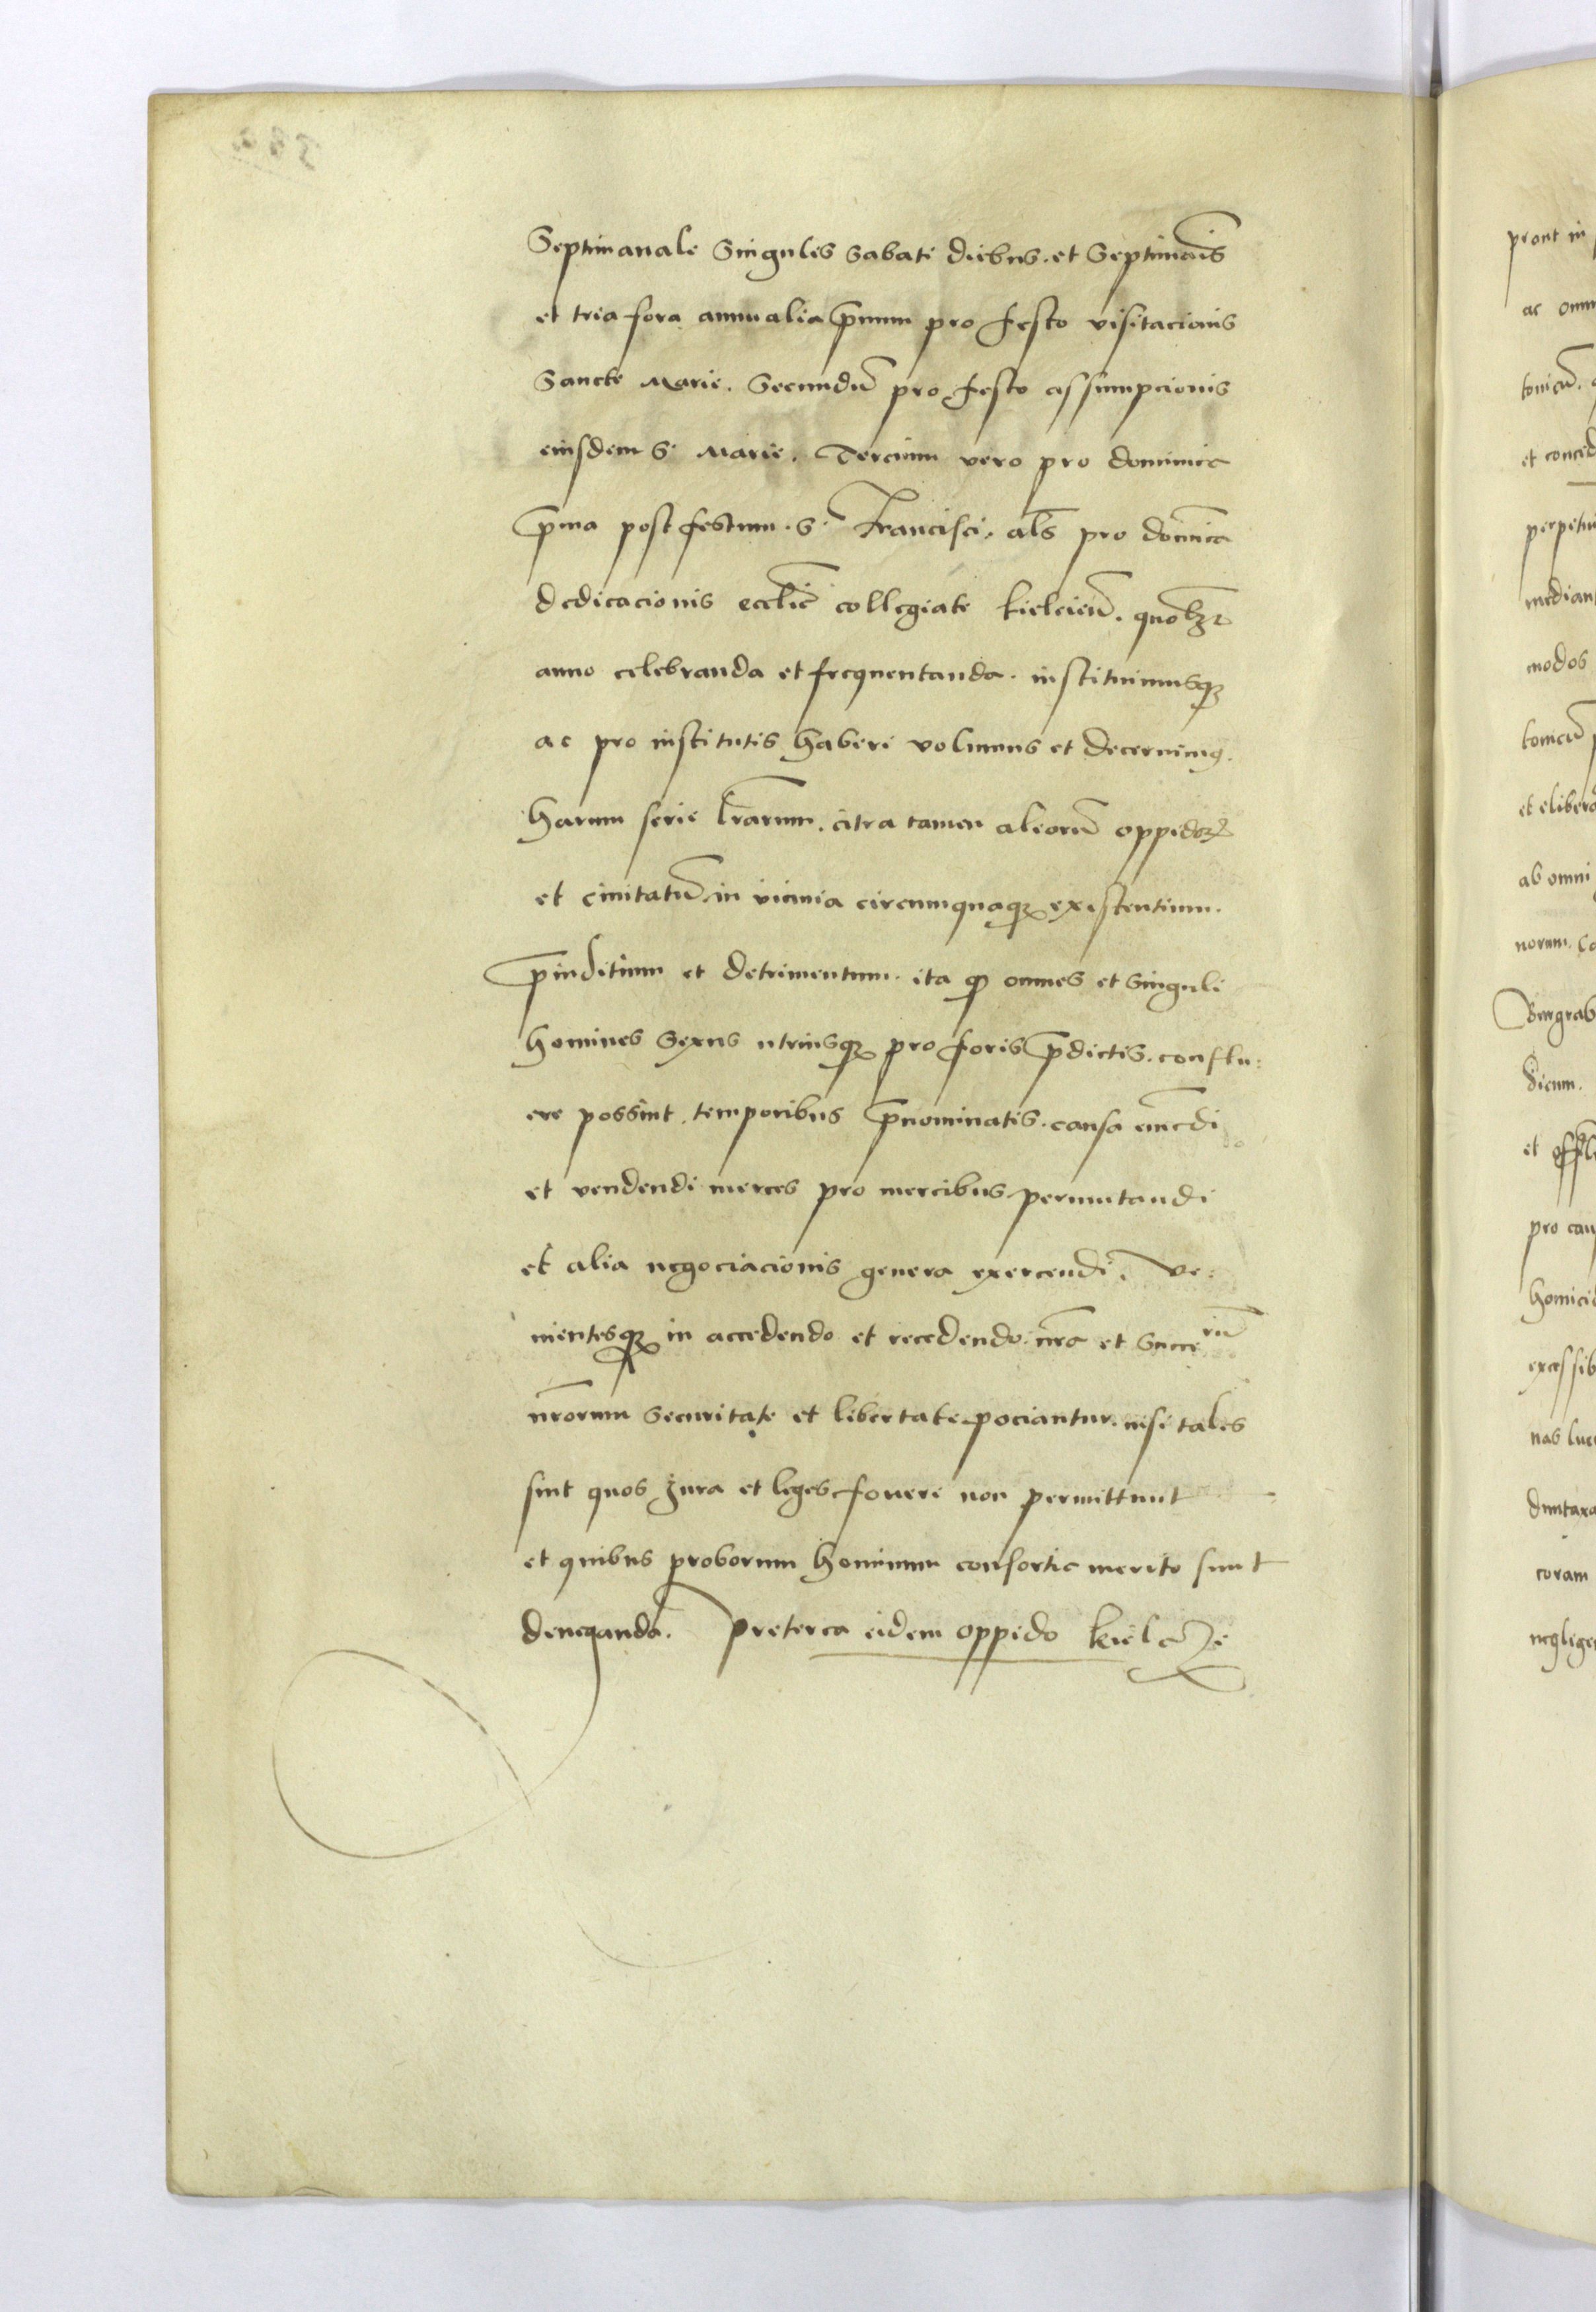 Septimanale singulis sabati diebus. et Septimanis
et tria fora annualia p̄mum pro festo visitacionis
Sancte Marie. Secundū pro festo assumpcionis
eiusdem S. Marie. Tercium vero pro dominica
p̄ma post festum. S. Francisci. al̄s pro domīca
dedicacionis eccl̄ie collegiate kielcien̄. quolꝫ
anno celebranda et frequentanda. instituimusqꝫ
ac pro institutis haberi volumus et decernimꝰ.
harum serie l̄rarum. citra tamen aliorū oppidoꝝ
et civitatū in vicinia circumquaqꝫ existentium.
p̄iuditium et detrimentum. ita ꝙ omnes et singuli
homines sexus utriusqꝫ pro foris p̄dictis. conflu:
ere possint. temporibus p̄nominatis. causa emēdi
et vendendi merces pro mercibus permutandi
et alia negociacionis genera exercendi. Ve:
nientesqꝫ in accedendo et recedendo. n̄ra et succerū
n̄rorum securitate et libertate pociantur. nisi tales
sint quos Jura et leges fovere non permittunt
et quibus proborum hominum consortia merito sunt
deneganda. Preterea eidem oppido kielcze
prout in
ac omn
tonicū.
et conced
perpetui
median
modos
tonicū
et elibera
ab omni
norum. Ca
Burgrab
dicum.
et
pro cau
homicid
excessib
nas lue
duntaxa
coram
neglige